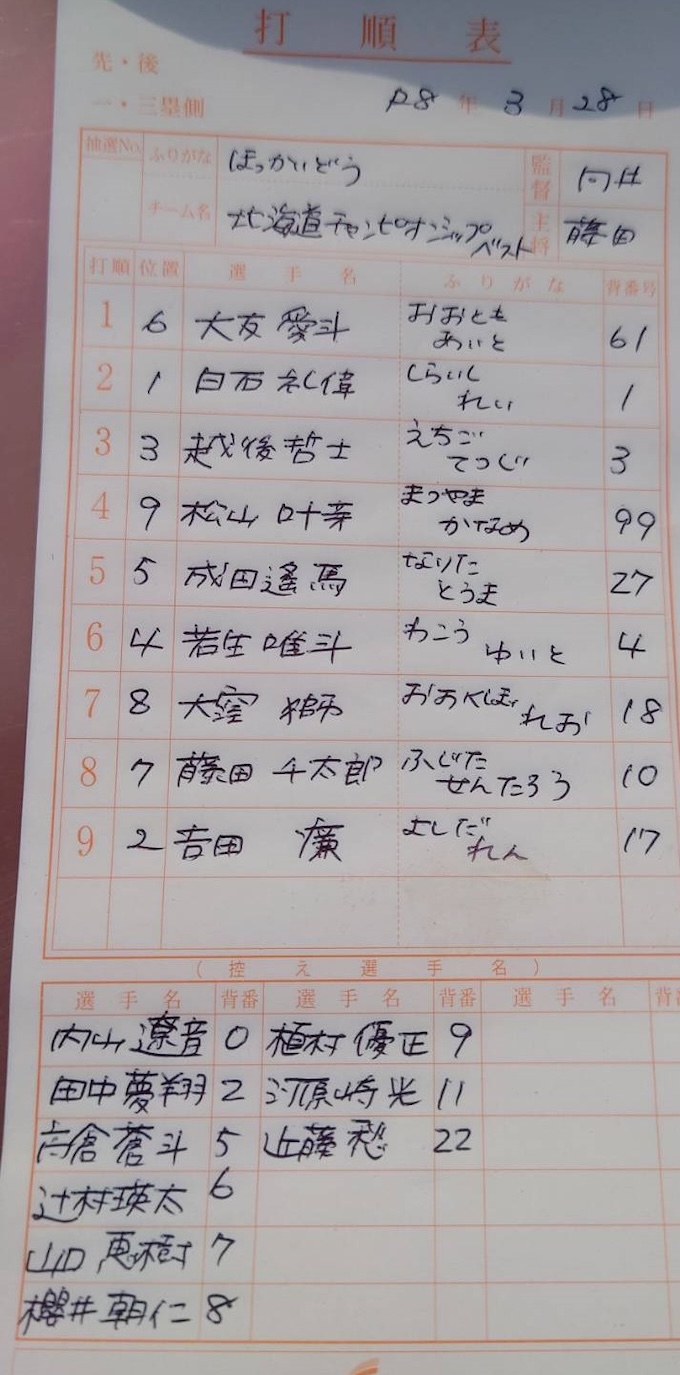 打順表
先・後
一・三塁側
R8年3月28日
抽選No. ふりがな ほっかいどう 監督 向井
チーム名 北海道チャンピオンシップベスト 主将 藤田
打順 位置 選手名 ふりがな 背番号
1 6 大友愛斗 おおとも あいと 61
2 1 白石礼偉 しらいし れい 1
3 3 越後哲士 えちご てつじ 3
4 9 松山叶芽 まつやま かなめ 99
5 5 成田遙馬 なりた とうま 27
6 4 若生唯斗 わこう ゆいと 4
7 8 大窪獅 おおくぼ れお 18
8 7 藤田千太郎 ふじた せんたろう 10
9 2 吉田廉 よしだ れん 17
(控え選手名)
選手名 背番 選手名 背番 選手名 背番
内山遼音 0 植村優正 9
田中夢翔 2 河原崎光 11
高倉蒼斗 5 近藤 22
辻村瑛太 6
山口恵樹 7
櫻井朝仁 8